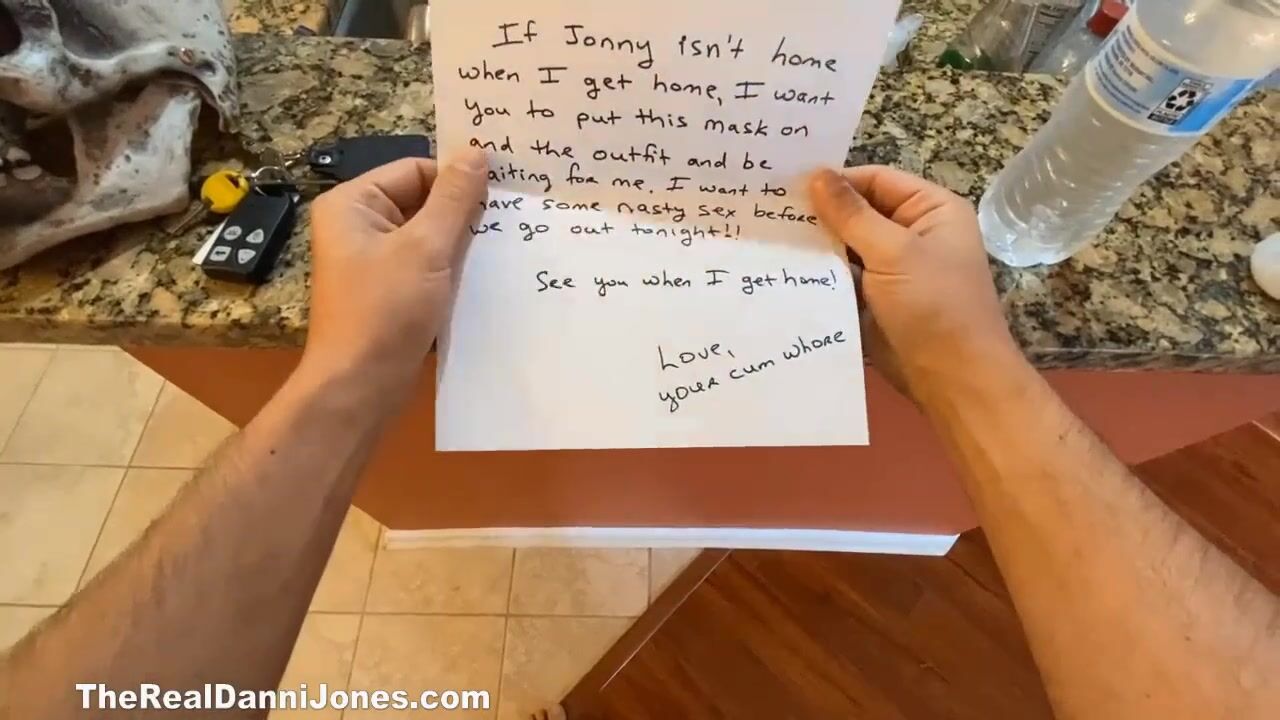 If Jonny isn't home
when I get home, I want
you to put this mask on
and the outfit and be
aiting for me. I want to
ave some nasty sex before
we go out tonight!!
See you when I get home!
Love,
your cum whore
TheRealDanniJones.com